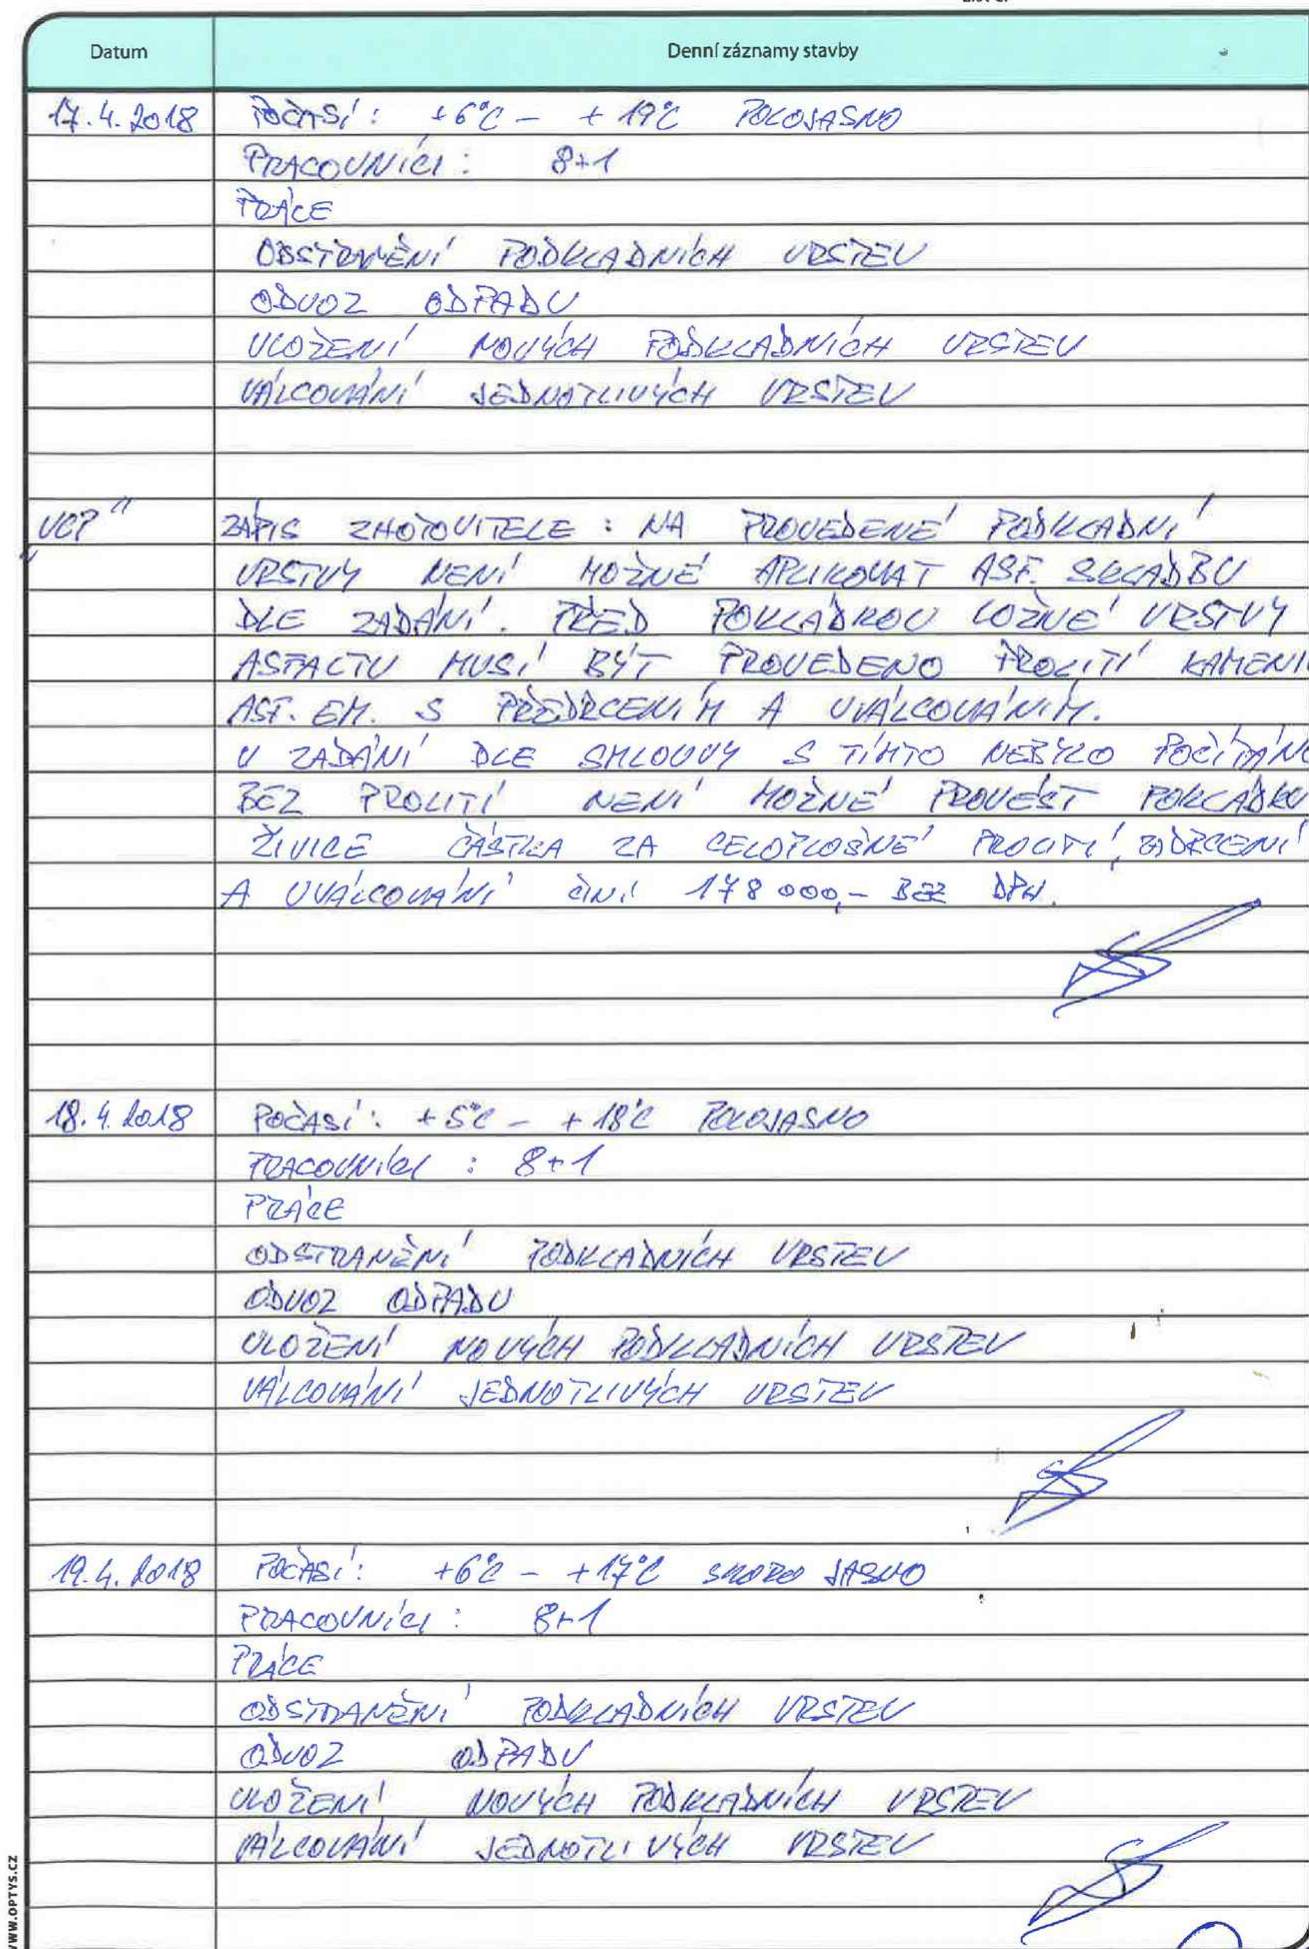 Datum
Denní záznamy stavby
17.4.2018 POČASÍ: +6°C - +19°C POLOJASNO
PRACOVNÍCI: 8+1
PRÁCE
ODSTRANĚNÍ PODKLADNÍCH VRSTEV
ODVOZ ODPADU
ULOŽENÍ NOVÝCH PODKLADNÍCH VRSTEV
VÁLCOVÁNÍ JEDNOTLIVÝCH VRSTEV
„VCP" ZÁPIS ZHOTOVITELE: NA PROVEDENÉ PODKLADNÍ
VRSTVY NENÍ MOŽNÉ APLIKOVAT ASF. SKLADBU
DLE ZADÁNÍ. PŘED POKLÁDKOU LOŽNÉ VRSTVY
ASFALTU MUSÍ BÝT PROVEDENO PROLITÍ KAMENI
ASF. EM. S PŘEDRCENÍM A UVÁLCOVÁNÍM.
V ZADÁNÍ DLE SMLOUVY S TÍMTO NEBYLO POČÍTÁNO
BEZ PROLITÍ NENÍ MOŽNÉ PROVÉST POKLÁDKU
ŽIVICE ČÁSTKA ZA CELOPLOŠNÉ PROLITÍ, ZADRCENÍ
A UVÁLCOVÁNÍ ČINÍ 178 000,- BEZ DPH.
18.4.2018 POČASÍ: +5°C - +18°C POLOJASNO
PRACOVNÍCI: 8+1
PRÁCE
ODSTRANĚNÍ PODKLADNÍCH VRSTEV
ODVOZ ODPADU
ULOŽENÍ NOVÝCH PODKLADNÍCH VRSTEV
VÁLCOVÁNÍ JEDNOTLIVÝCH VRSTEV
19.4.2018 POČASÍ: +6°C - +17°C SKORO JASNO
PRACOVNÍCI: 8+1
PRÁCE
ODSTRANĚNÍ PODKLADNÍCH VRSTEV
ODVOZ ODPADU
ULOŽENÍ NOVÝCH PODKLADNÍCH VRSTEV
VÁLCOVÁNÍ JEDNOTLIVÝCH VRSTEV
WWW.OPTYS.CZ